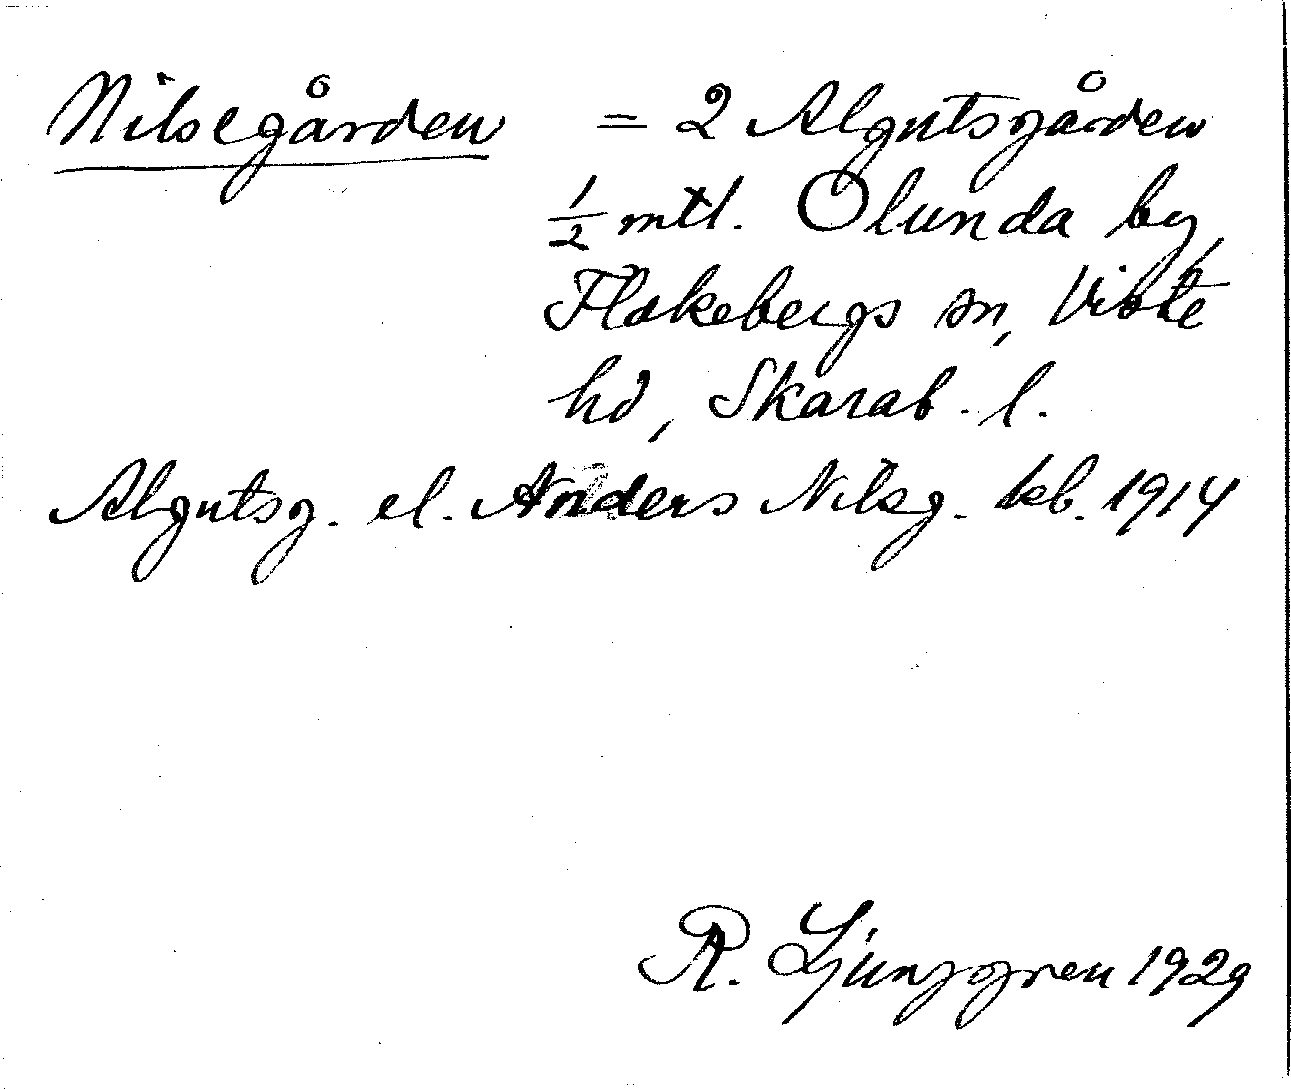 Nilsegården = 2 Algutsgården
1/2 mtl. Olunda by,
Flakebergs sn, Viste
hd, Skarab. l.
Algutsg. el. Anders Nilsg. kb. 1914
R. Ljunggren 1929